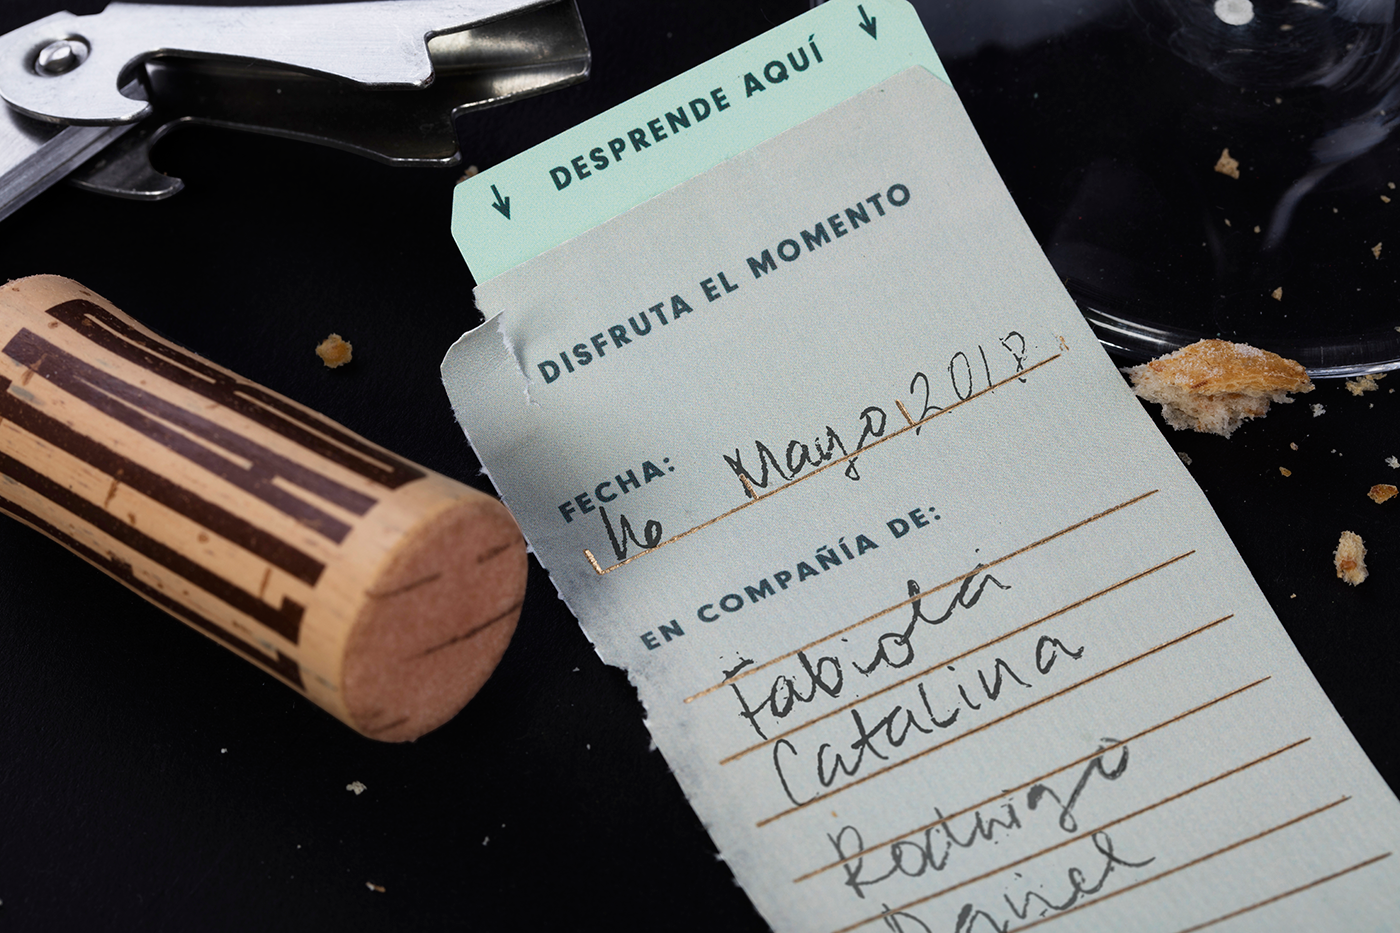 DESPRENDE AQUÍ
DISFRUTA EL MOMENTO
FECHA:
Mayo 2018
EN COMPAÑÍA DE:
Fabiola
Catalina
Rodrigo
Daniel